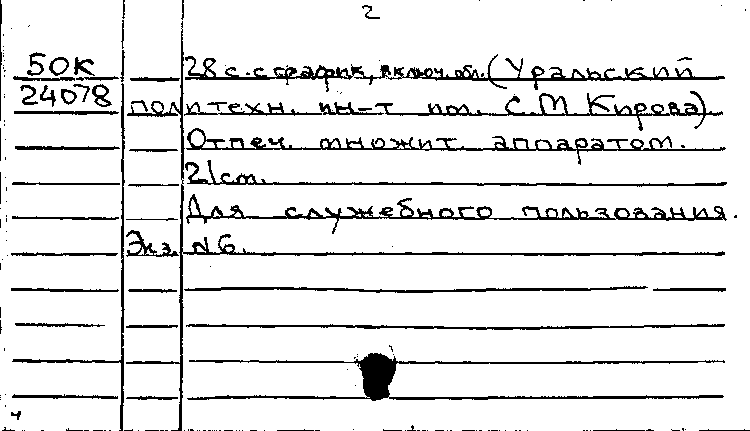 2
50К 28 с. с график, включ. обл. (Уральский
24078 политехн. ин-т им. С.М Кирова)
Отпеч. множит. аппаратом.
21 cm.
Для служебного пользования.
Экз. N6.
ч